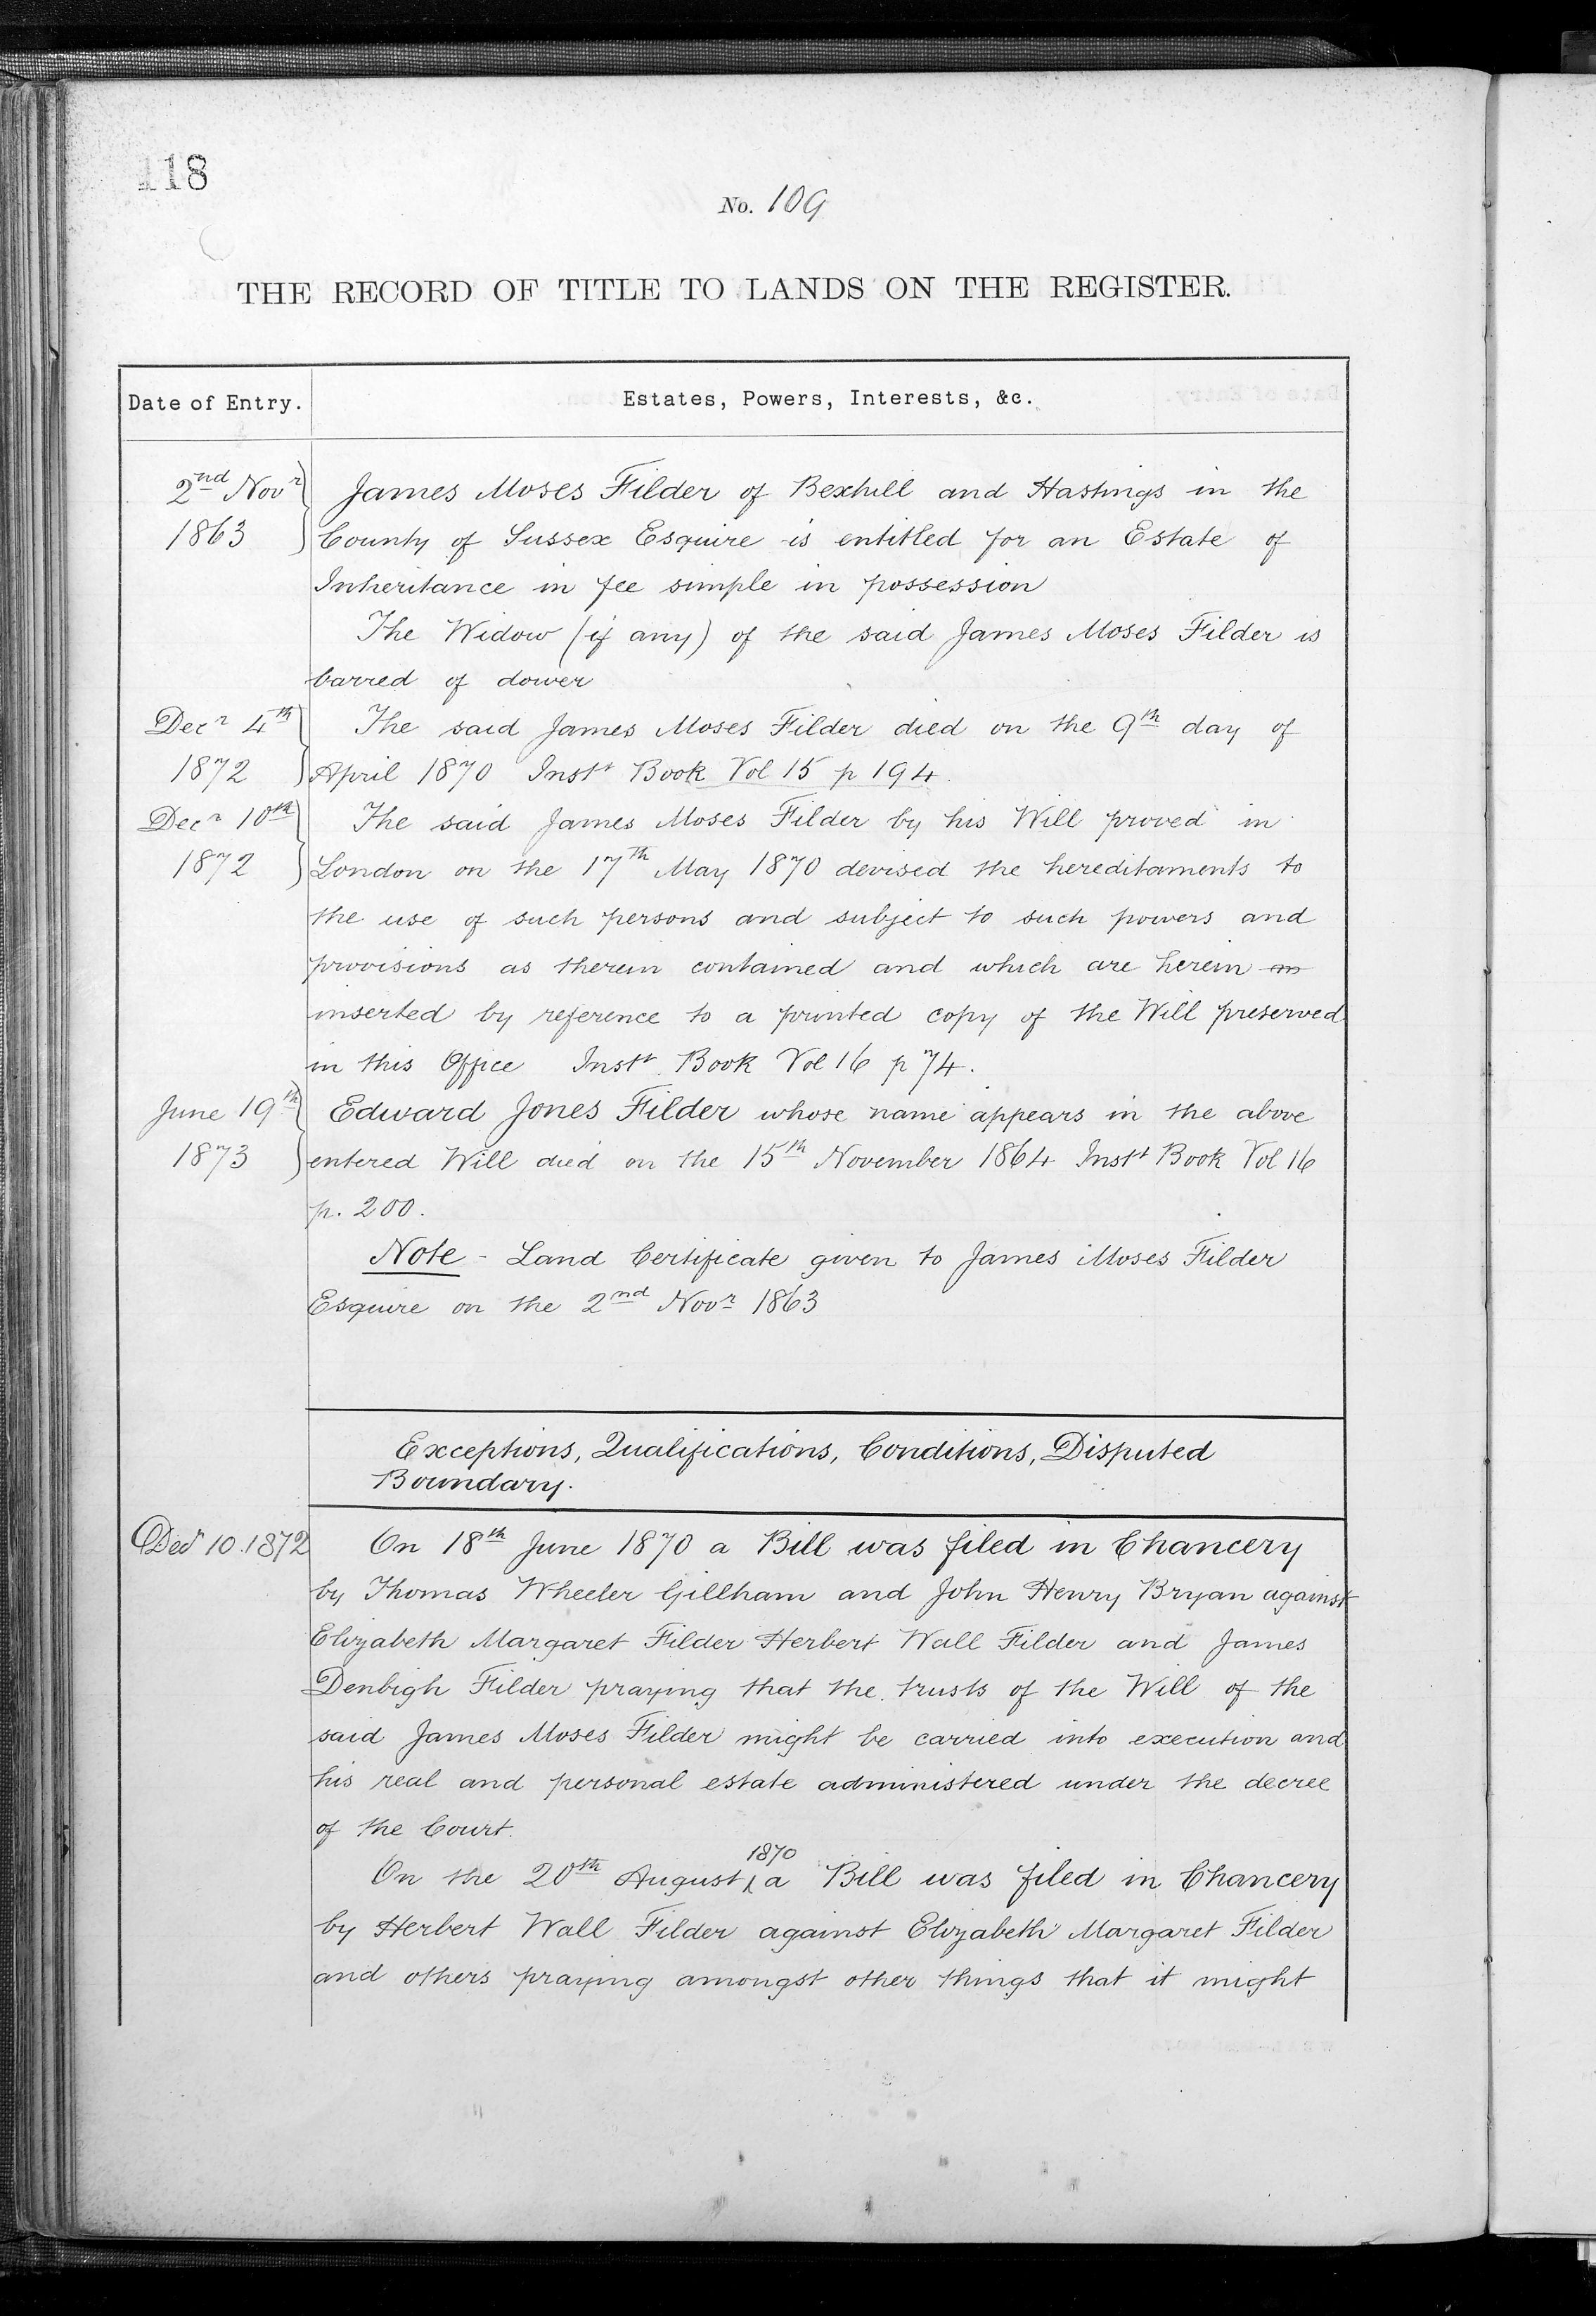 118
No. 109
THE RECORD OF TITLE TO LANDS ON THE REGISTER.
Date of Entry.
Estates, Powers, Interests, &c.
2nd Novr James Moses Filder of Bexhill and Hastings in the
1863 County of Sussex Esquire is entitled for an Estate of
Inheritance in fee simple in possession
The Widow (if any) of the said James Moses Filder is
barred of dower
Decr 4th The said James Moses Filder died on the 9th day of
1872 April 1870 Instt Book Vol 15 p 194.
Decr 10th The said James Moses Filder by his Will proved in
1872 London on the 17th May 1870 devised the hereditaments to
the use of such persons and subject to such powers and
provisions as therein contained and which are herein
inserted by reference to a printed copy of the Will preserved
in this Office Instt Book Vol 16 p 74.
June 19th Edward Jones Filder whose name appears in the above
1873 entered Will died on the 15th November 1864 Instt Book Vol 16
p. 200.
Note - Land Certificate given to James Moses Filder
Esquire on the 2nd Novr 1863
Exceptions, Qualifications, Conditions, Disputed
Boundary.
Decr 10. 1872 On 18th June 1870 a Bill was filed in Chancery
by Thomas Wheeler Gillham and John Henry Bryan against
Elizabeth Margaret Filder Herbert Wall Filder and James
Denbigh Filder praying that the trusts of the Will of the
said James Moses Filder might be carried into execution and
his real and personal estate administered under the decree
of the Court.
On the 20th August 1870 a Bill was filed in Chancery
by Herbert Wall Filder against Elizabeth Margaret Filder
and others praying amongst other things that it might